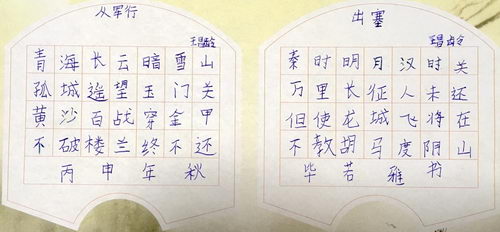 从军行
王昌龄
青海长云暗雪山
孤城遥望玉门关
黄沙百战穿金甲
不破楼兰终不还
丙申年秋
出塞
王昌龄
秦时明月汉时关
万里长征人未还
但使龙城飞将在
不教胡马度阴山
毕若雅书